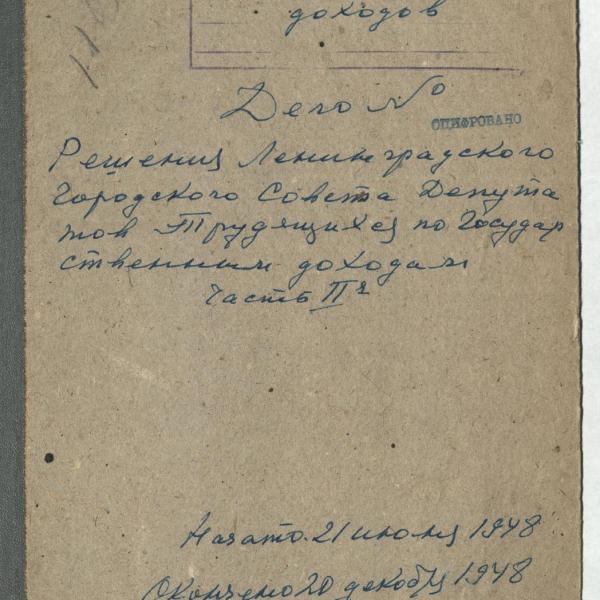 доходов
Дело №
ОЦИФРОВАНО
Решения Ленинградского
Городского Совета Депута
тов Трудящихся по Государ
ственным доходам
Часть II я
Начато 21 июля 1948
Окончено 20 декабря 1948